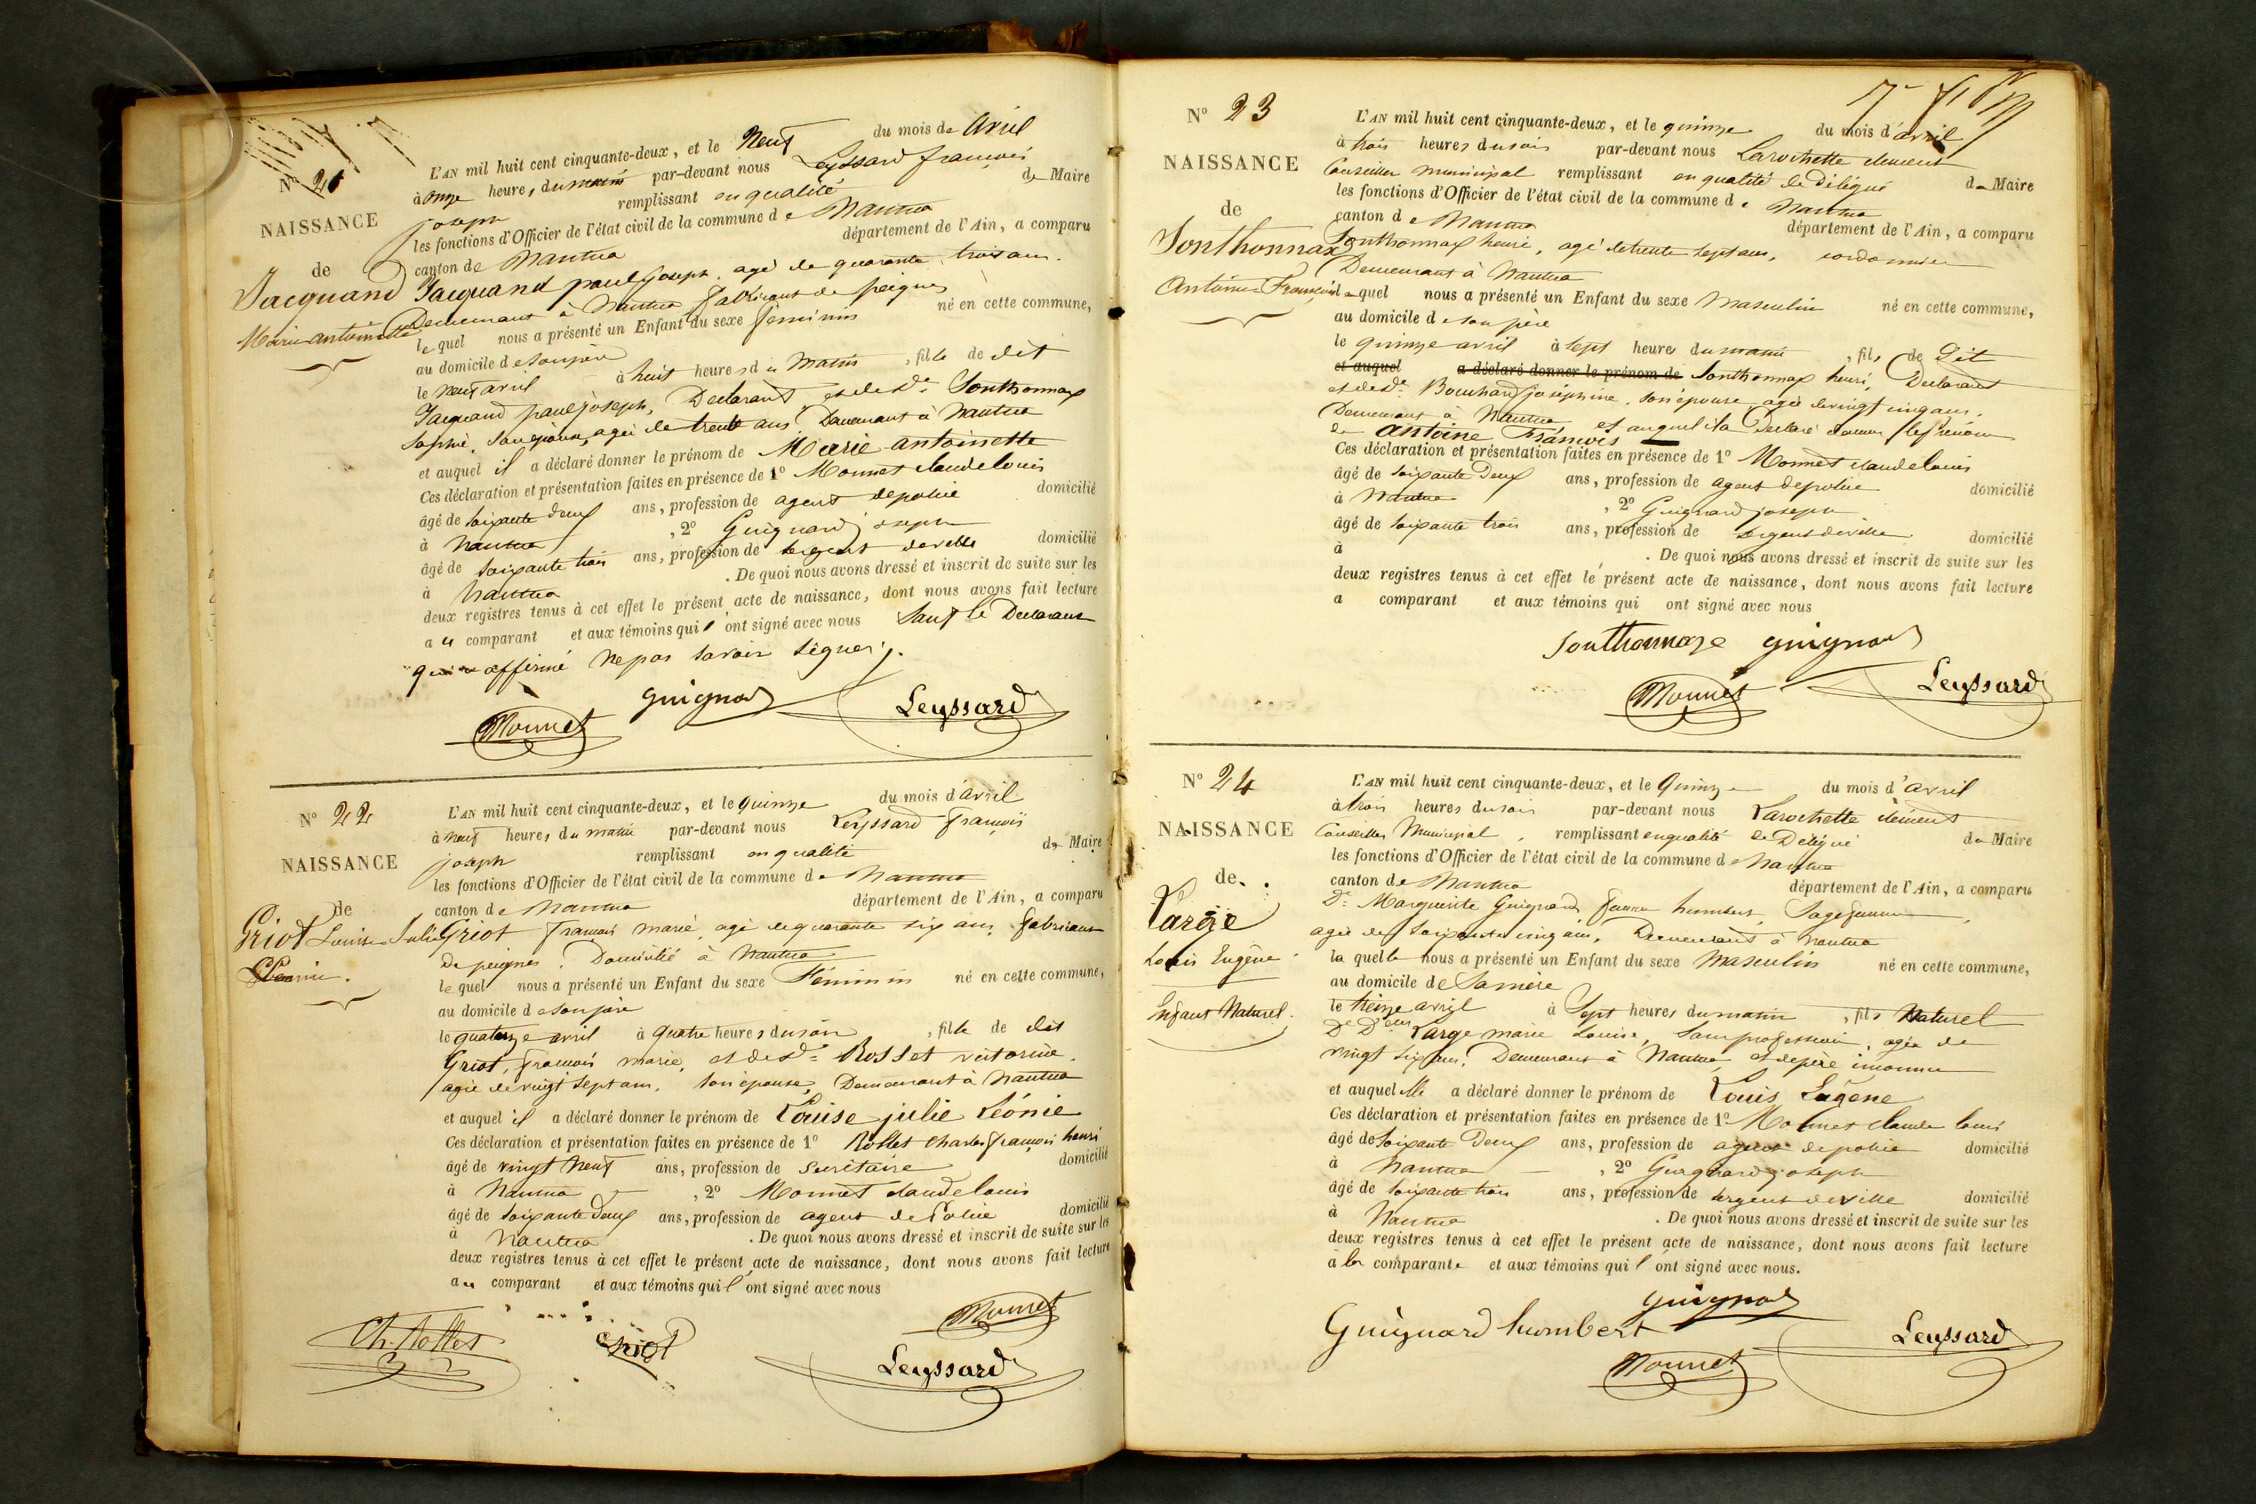 Nº 21
NAISSANCE
de
Jacquand
Marie antoinette
L'AN mil huit cent cinquante-deux, et le Neuf du mois de Avril
à onze heures du matin par-devant nous Leyssard francois
joseph remplissant en qualité de Maire
les fonctions d'Officier de l'état civil de la commune de Nantua
canton de Nantua département de l'Ain, a comparu
Jacquand paul joseph, agé de quarante trois ans.
Demeurant à Nantua fabricant de peignes
lequel nous a présenté un Enfant du sexe féminin né en cette commune,
au domicile de son père
le neuf avril à huit heures du Matin, fille de dit
Jacquand paul joseph, Declarant et de de Sonthonnax
sophie, son épouse, agée de trente ans Demeurant à Nantua
et auquel il a déclaré donner le prénom de Marie antoinette
Ces déclaration et présentation faites en présence de 1º Monnet claude louis
âgé de soixante deux ans, profession de agent de police domicilié
à Nantua, 2º Guignard joseph
âgé de soixante trois ans, profession de sergent de ville domicilié
à Nantua. De quoi nous avons dressé et inscrit de suite sur les
deux registres tenus à cet effet le présent acte de naissance, dont nous avons fait lecture
au comparant et aux témoins qui l'ont signé avec nous Sauf le Declarant
qui a affirmé ne pas savoir signer.
Monnet guignard Leyssard
Nº 22
NAISSANCE
de
Griot Louise Julie
Léonie.
L'AN mil huit cent cinquante-deux, et le quinze du mois d'avril
à neuf heures du matin par-devant nous Leyssard françois
joseph remplissant en qualité de Maire
les fonctions d'Officier de l'état civil de la commune de Nantua
canton de Nantua département de l'Ain, a comparu
Griot francois marie, agé de quarante six ans, fabricant
de peignes. Domicilié à Nantua
lequel nous a présenté un Enfant du sexe Féminin né en cette commune,
au domicile de son père
le quatorze avril à quatre heures du soir, fille de dit
Griot, francois marie, et de de Rosset victorine.
agée de vingt sept ans, son épouse, Demeurant à Nantua
et auquel il a déclaré donner le prénom de Louise julie Léonie
Ces déclaration et présentation faites en présence de 1º Rollet charles françois henri
âgé de vingt neuf ans, profession de secrétaire domicilié
à Nantua, 2º Monnet claude louis
âgé de soixante deux ans, profession de agent de Police domicilié
à Nantua. De quoi nous avons dressé et inscrit de suite sur les
deux registres tenus à cet effet le présent acte de naissance, dont nous avons fait lecture
au comparant et aux témoins qui l'ont signé avec nous
Monnet
Ch. Rollet Griot Leyssard
Nº 23
NAISSANCE
de
Sonthonnax
Antoine François
L'AN mil huit cent cinquante-deux, et le quinze du mois d'avril
à trois heures du soir par-devant nous Larochette clement
Conseiller municipal remplissant en qualité de délégué de Maire
les fonctions d'Officier de l'état civil de la commune de Nantua
canton de Nantua département de l'Ain, a comparu
Sonthonnax henri, agé de trente sept ans, cordonnier
Demeurant à Nantua
lequel nous a présenté un Enfant du sexe Masculin né en cette commune,
au domicile de son père
le quinze avril à sept heures du matin, fils de Dit
et auquel a déclaré donner le prénom de Sonthonnax henri, Declarant
et de de Bouchard joséphine, son épouse agée de vingt cinq ans.
Demeurant à Nantua et auquel il a Declaré donner les prénom
de antoine francois
Ces déclaration et présentation faites en présence de 1º Monnet claude louis
âgé de soixante deux ans, profession de agent de police domicilié
à Nantua, 2º Guignard joseph
âgé de soixante trois ans, profession de sergent de ville domicilié
à . De quoi nous avons dressé et inscrit de suite sur les
deux registres tenus à cet effet le présent acte de naissance, dont nous avons fait lecture
a comparant et aux témoins qui ont signé avec nous
Sonthonnaxe guignard
Monnet Leyssard
Nº 24
NAISSANCE
de
Large
Louis Eugène
Enfant Naturel.
L'AN mil huit cent cinquante-deux, et le Quinze du mois d'avril
à trois heures du soir par-devant nous Larochette clément
Conseiller Municipal, remplissant en qualité de Délégué de Maire
les fonctions d'Officier de l'état civil de la commune de Nantua
canton de Nantua département de l'Ain, a comparu
De Marguerite Guignard femme humbert, Sage femme,
agée de soixante cinq ans, Demeurant à Nantua
laquelle nous a présenté un Enfant du sexe Masculin né en cette commune,
au domicile de Sa mère
le treize avril à Sept heures du matin, fils Naturel
De Delle Large marie Louise, Sans profession, agée de
vingt six ans, Demeurant à Nantua, et de père inconnu
et auquel elle a déclaré donner le prénom de Louis Eugène
Ces déclaration et présentation faites en présence de 1º Monnet claude louis
âgé de soixante Deux ans, profession de agent de police domicilié
à Nantua, 2º Guignard joseph
âgé de soixante trois ans, profession de sergent de ville domicilié
à Nantua. De quoi nous avons dressé et inscrit de suite sur les
deux registres tenus à cet effet le présent acte de naissance, dont nous avons fait lecture
à la comparante et aux témoins qui l'ont signé avec nous.
Guignard humbert guignard
Monnet Leyssard